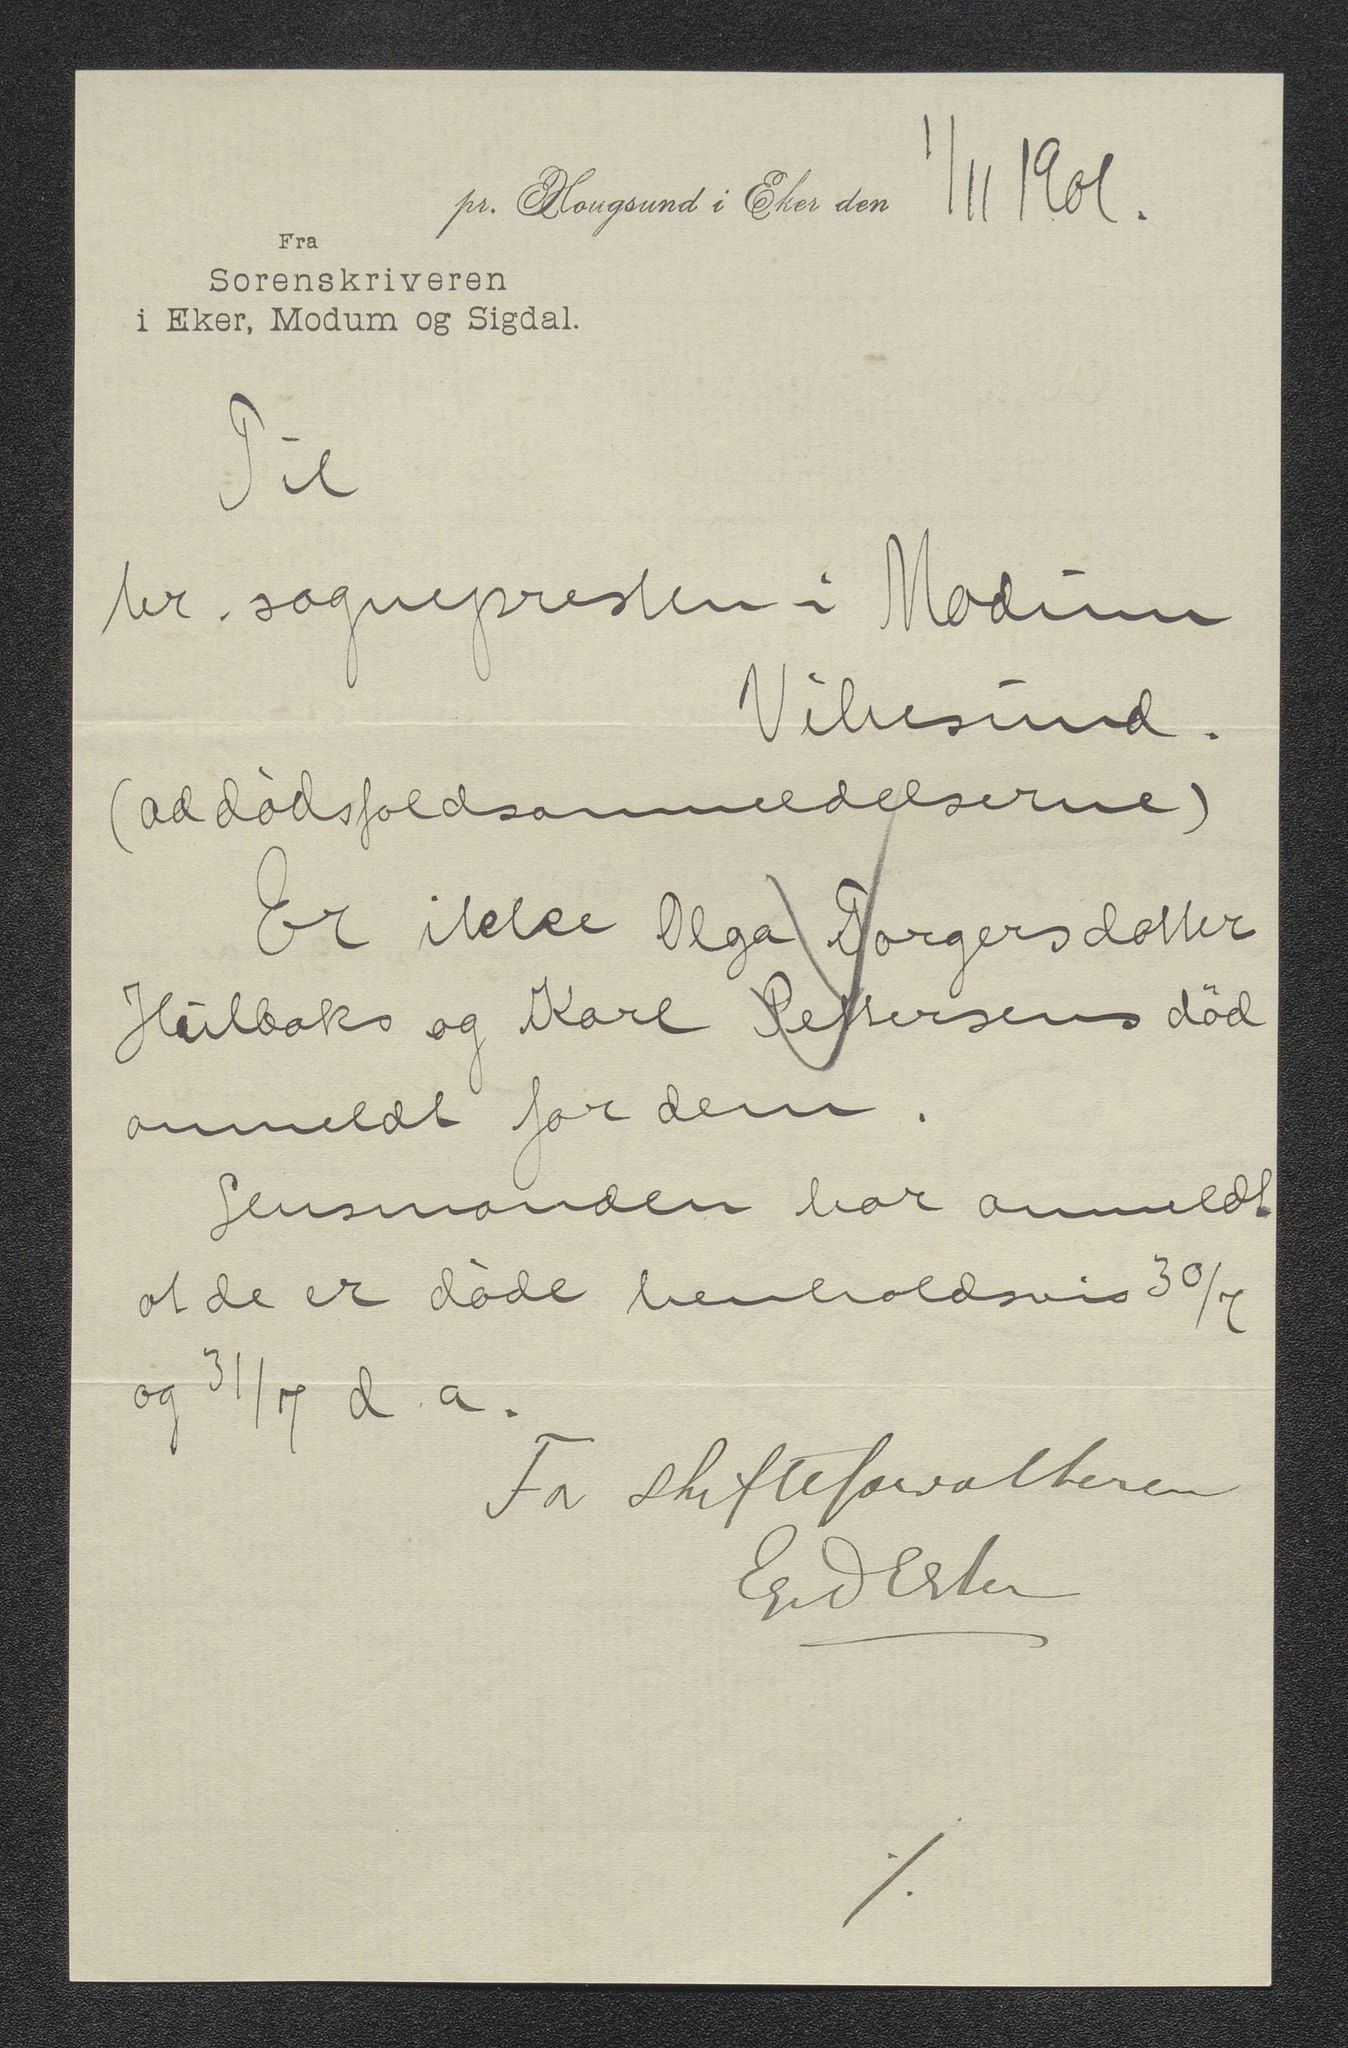 pr. Hougsund i Eker den 1/11 1901.
Fra
Sorenskriveren
i Eker, Modum og Sigdal.
Til
hr. sognepresten i Modum
Vikesund.
(ad dødsfaldsanmeldelserne)
Er ikke Olga Torgersdatter
Hulbaks og Karl Pettersens død
anmeldt for dem.
Lensmanden har anmeldt
at de er døde henholdsvis 30/7
og 31/7 d. a.
For skifteforvalteren
./.